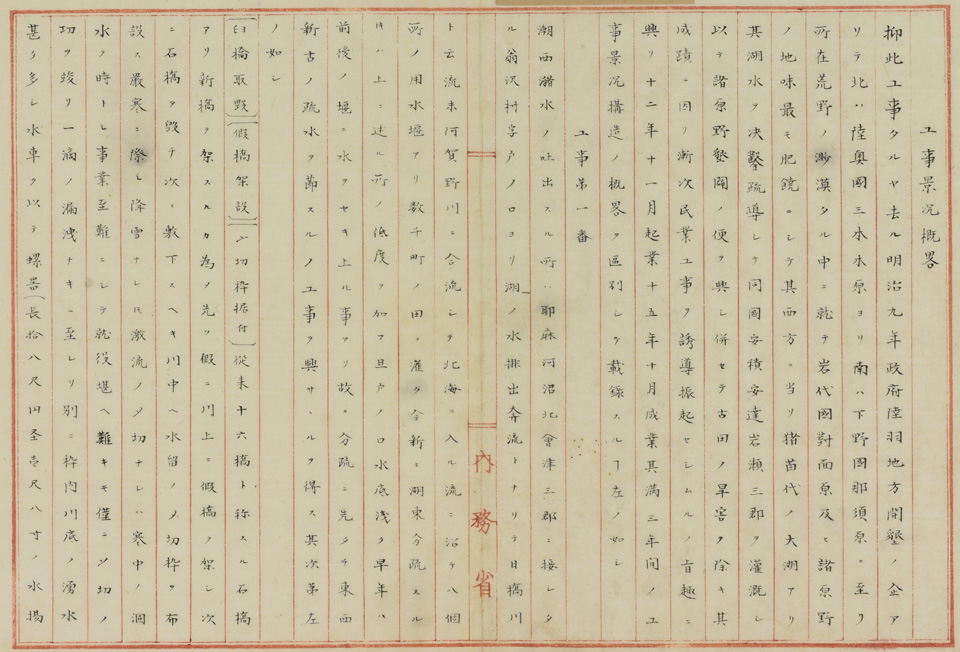 工事景況概畧
抑此工事タルヤ去ル明治九年政府陸羽地方開墾ノ企ア
リテ北ハ陸奥國三本木原ヨリ南ハ下野國那須原ニ至リ
所在荒野ノ渺漠タル中ニ就テ岩代國對面原及ヒ諸原野
ノ地味最モ肥饒ニシテ其西方ニ当リ猪苗代ノ大湖アリ
其湖水ヲ决鑿疏導シテ同國安積安達岩瀬三郡ヲ灌漑シ
以テ諸原野墾開ノ便ヲ興シ併セテ古田ノ旱害ヲ除キ其
成蹟ニ因リ漸次民業工事ヲ誘導振起セシムルノ旨趣ニ
興リ十二年十一月起業十五年十月成業其満三年間ノ工
事景况構造ノ概畧ヲ區別シテ載録スルヿ左ノ如シ
工事第一番
湖西潴水ノ吐出スル所ハ耶麻河沼北會津三郡ニ接シタ
ル翁沢村字戸ノ口ヨリ湖ノ水排出奔流トナリテ日橋川
ト云流末阿賀野川ニ合流シテ北海ニ入ル流ニ沿テ八個
所ノ用水堰アリ数千町ノ田ニ灌ク今新ニ湖東分疏スル
片ハ上ニ述ル所ノ低度ヲ加フ且戸ノ口水底浅ク早年ハ
前後ノ堰ニ水ヲセキ上ル事アリ故ニ分疏ニ先タチ東西
新古ノ疏水ヲ節スルノ工事ヲ興サヽルヲ得ス其次第左
ノ如シ
臼橋取毀 假橋架設 〆切枠据付 從来十六橋ト称スル石橋
アリ新橋ヲ架スルカ為メ先ツ假ニ川上ニ假橋ヲ架シ次
ニ石橋ヲ毀テ次ニ敷下スヘキ川中ヘ水留ノ〆切枠ヲ布
設ス厳寒ニ際シ降雪ナレ𪜈激流ノ〆切ナレハ寒中ノ涸
水ヲ時トシ事業至難ニシテ就役堪ヘ難キモ僅ニ〆切ノ
功ヲ竣リ一滴ノ漏洩ナキニ至レリ別ニ枠内川底ノ湧水
甚タ多シ水車ヲ以テ螺器(長拾八尺円圣壱尺八寸ノ水揚
内務省